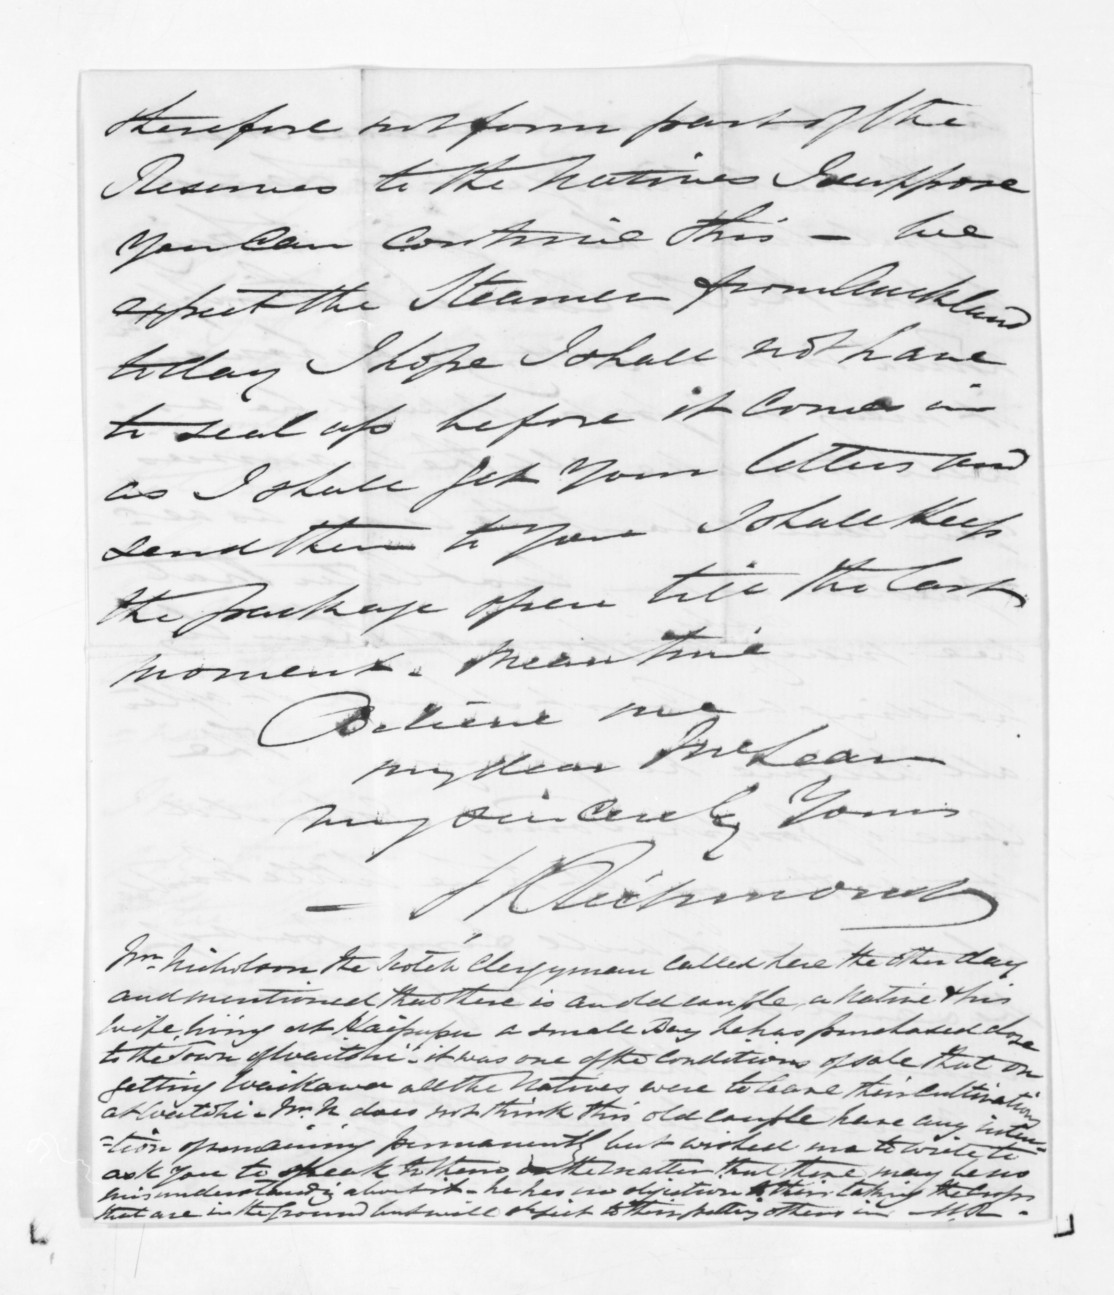 therefore not form part of the
Reserves to the Natives I suppose
you can contrive this — we
expect the Steamer from Auckland
today I hope I shall not have
to seal up before it comes in
as I shall get your letters and
send them to you I shall keep
the package open till the last
moment. Meantime
Believe me
my dear McLean
very sincerely Yours
— Richmond
Mr. Nicholson the Scotch Clergyman called here the other day
and mentioned that there is an old couple, a Native & his
wife living at Kaipupu a small Bay he has purchased close
to the Town of Waitohi - it was one of the conditions of sale that on
getting Waikawa all the Natives were to leave their cultivations
at Waitohi - Mr. N does not think this old couple have any inten-
-tion of remaining permanently but wished me to write to
ask you to speak to them on the matter that there may be no
misunderstanding about it - he has no objection to their taking the crops
that are in the ground but will object to their putting others in - M.R -